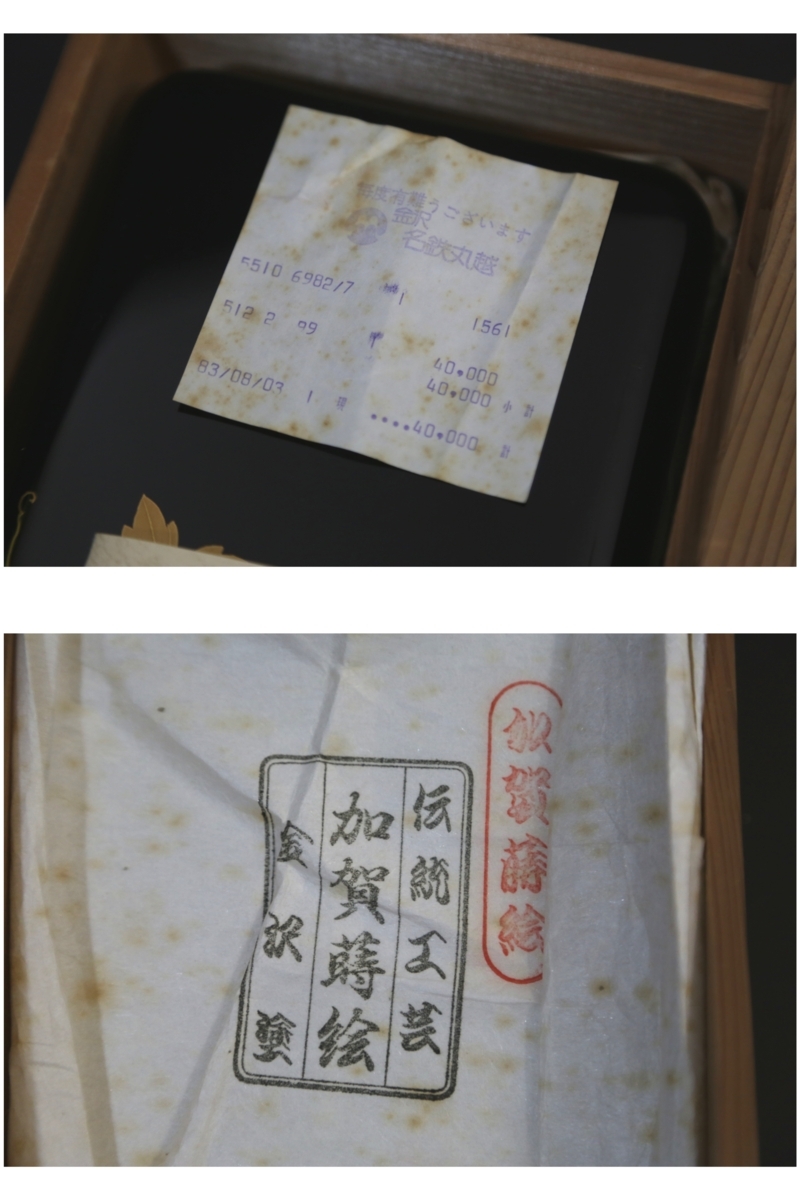 毎度有難うございます
金沢
名鉄丸越
5510 6982/7 1
1561
512 2 99
40.000
40.000 小計
83/08/03 1 現
....40.000 計
加賀蒔絵
伝統工芸
加賀蒔絵
金沢塗